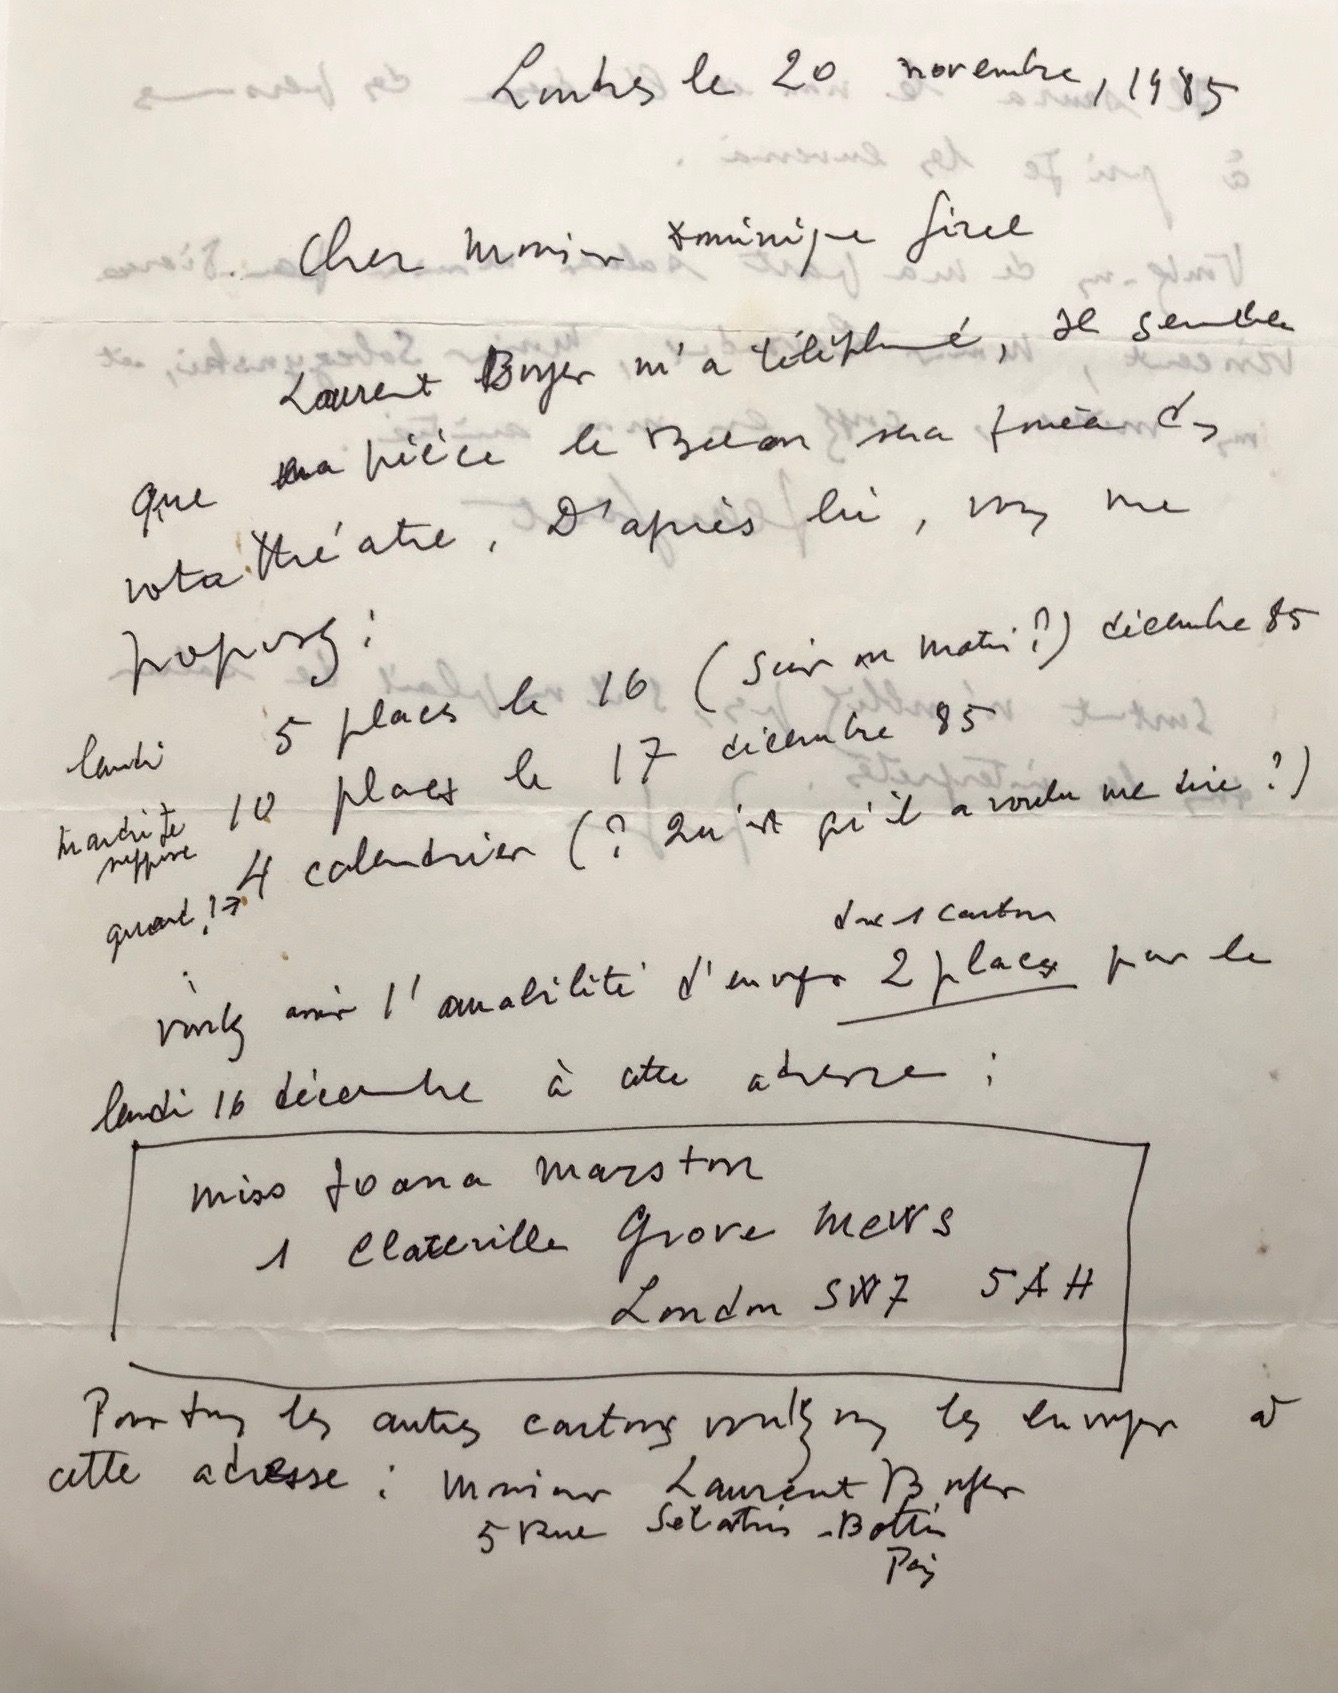 Londres le 20 novembre, 1985
Cher Monsieur Dominique
Laurent Boyer m'a téléphoné, Il semble
que ma pièce le Balcon sera jouée à
votre théâtre. D'après lui, vous me
proposez :
lundi 5 places le 16 (soir ou matin ?) décembre 85
mardi je suppose 10 places le 17 décembre 85
quand !? → 4 calendrier (? Qu'est qu'il a voulu me dire ?)
donc 1 carton
Veuillez avoir l'amabilité d'envoyer 2 places pour le
lundi 16 décembre à cette adresse :
Miss Joana Marston
1 Grove Mews
London SW7 5AH
Pour tous les autres cartons veuillez vous les envoyer à
cette adresse : Monsieur Laurent Boyer
5 Rue Sébastien-Bottin
Paris